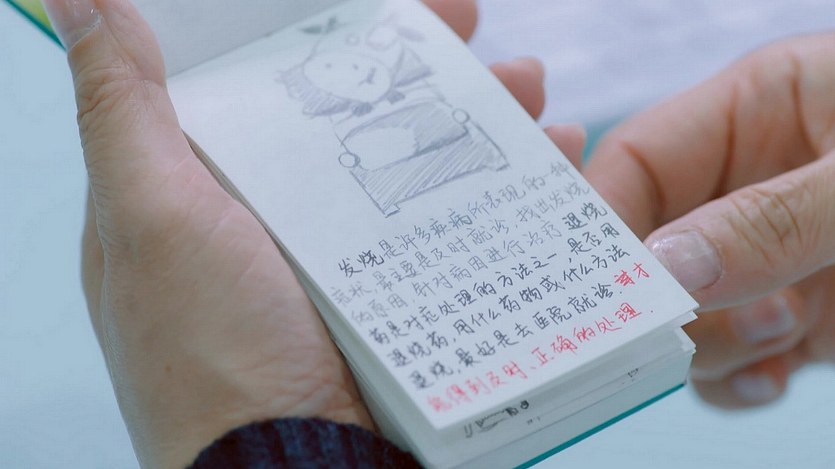 发烧是许多疾病所表现的一种
症状,最主要是及时就诊,找出发烧
的原因,针对病因进行治疗.退烧
药是对症处理的方法之一.是否用
退烧药,用什么药物或什么方法
退烧,最好是去医院就诊.并才
能得到及时、正确的处理.